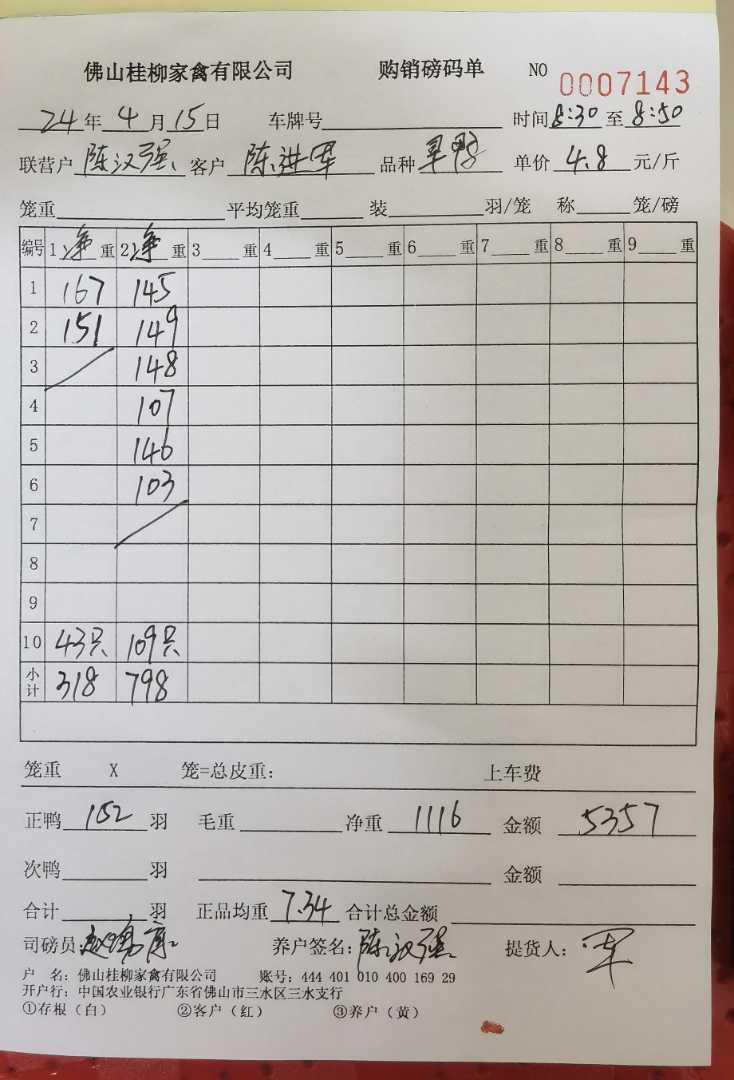 佛山桂柳家禽有限公司 购销磅码单 NO 0007143
24年4月15日 车牌号 时间8:30至8:50
联营户陈汉强 客户陈进军 品种旱鸭 单价4.8元/斤
笼重 平均笼重 装 羽/笼 称 笼/磅
编号 1净重 2净重 3 重 4 重 5 重 6 重 7 重 8 重 9 重
1 167 145
2 151 149
3 148
4 107
5 146
6 103
7
8
9
10 43只 109只
小计 318 798
笼重 X 笼=总皮重: 上车费
正鸭152羽 毛重 净重1116 金额5357
次鸭 羽 金额
合计 羽 正品均重7.34 合计总金额
司磅员: 养户签名:陈汉强 提货人:军
户 名: 佛山桂柳家禽有限公司 账号: 444 401 010 400 169 29
开户行: 中国农业银行广东省佛山市三水区三水支行
①存根(白) ②客户(红) ③养户(黄)